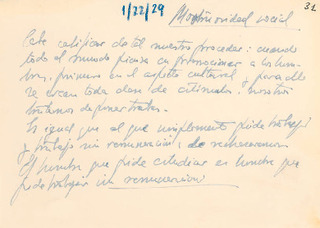 1/22/29 31
social
Este calificar de tal nuestro proceder: cuando
todo el mundo piensa en promocionar a los hom-
bres, primero en el aspecto cultural y para ello
se crean toda clase de estímulos, nosotros
tratamos de poner trabas.
Es igual que al que simplemente pide trabajo
y trabajo sin remuneración, le
El hombre que pide estudiar es hombre que
pide trabajar sin remuneración